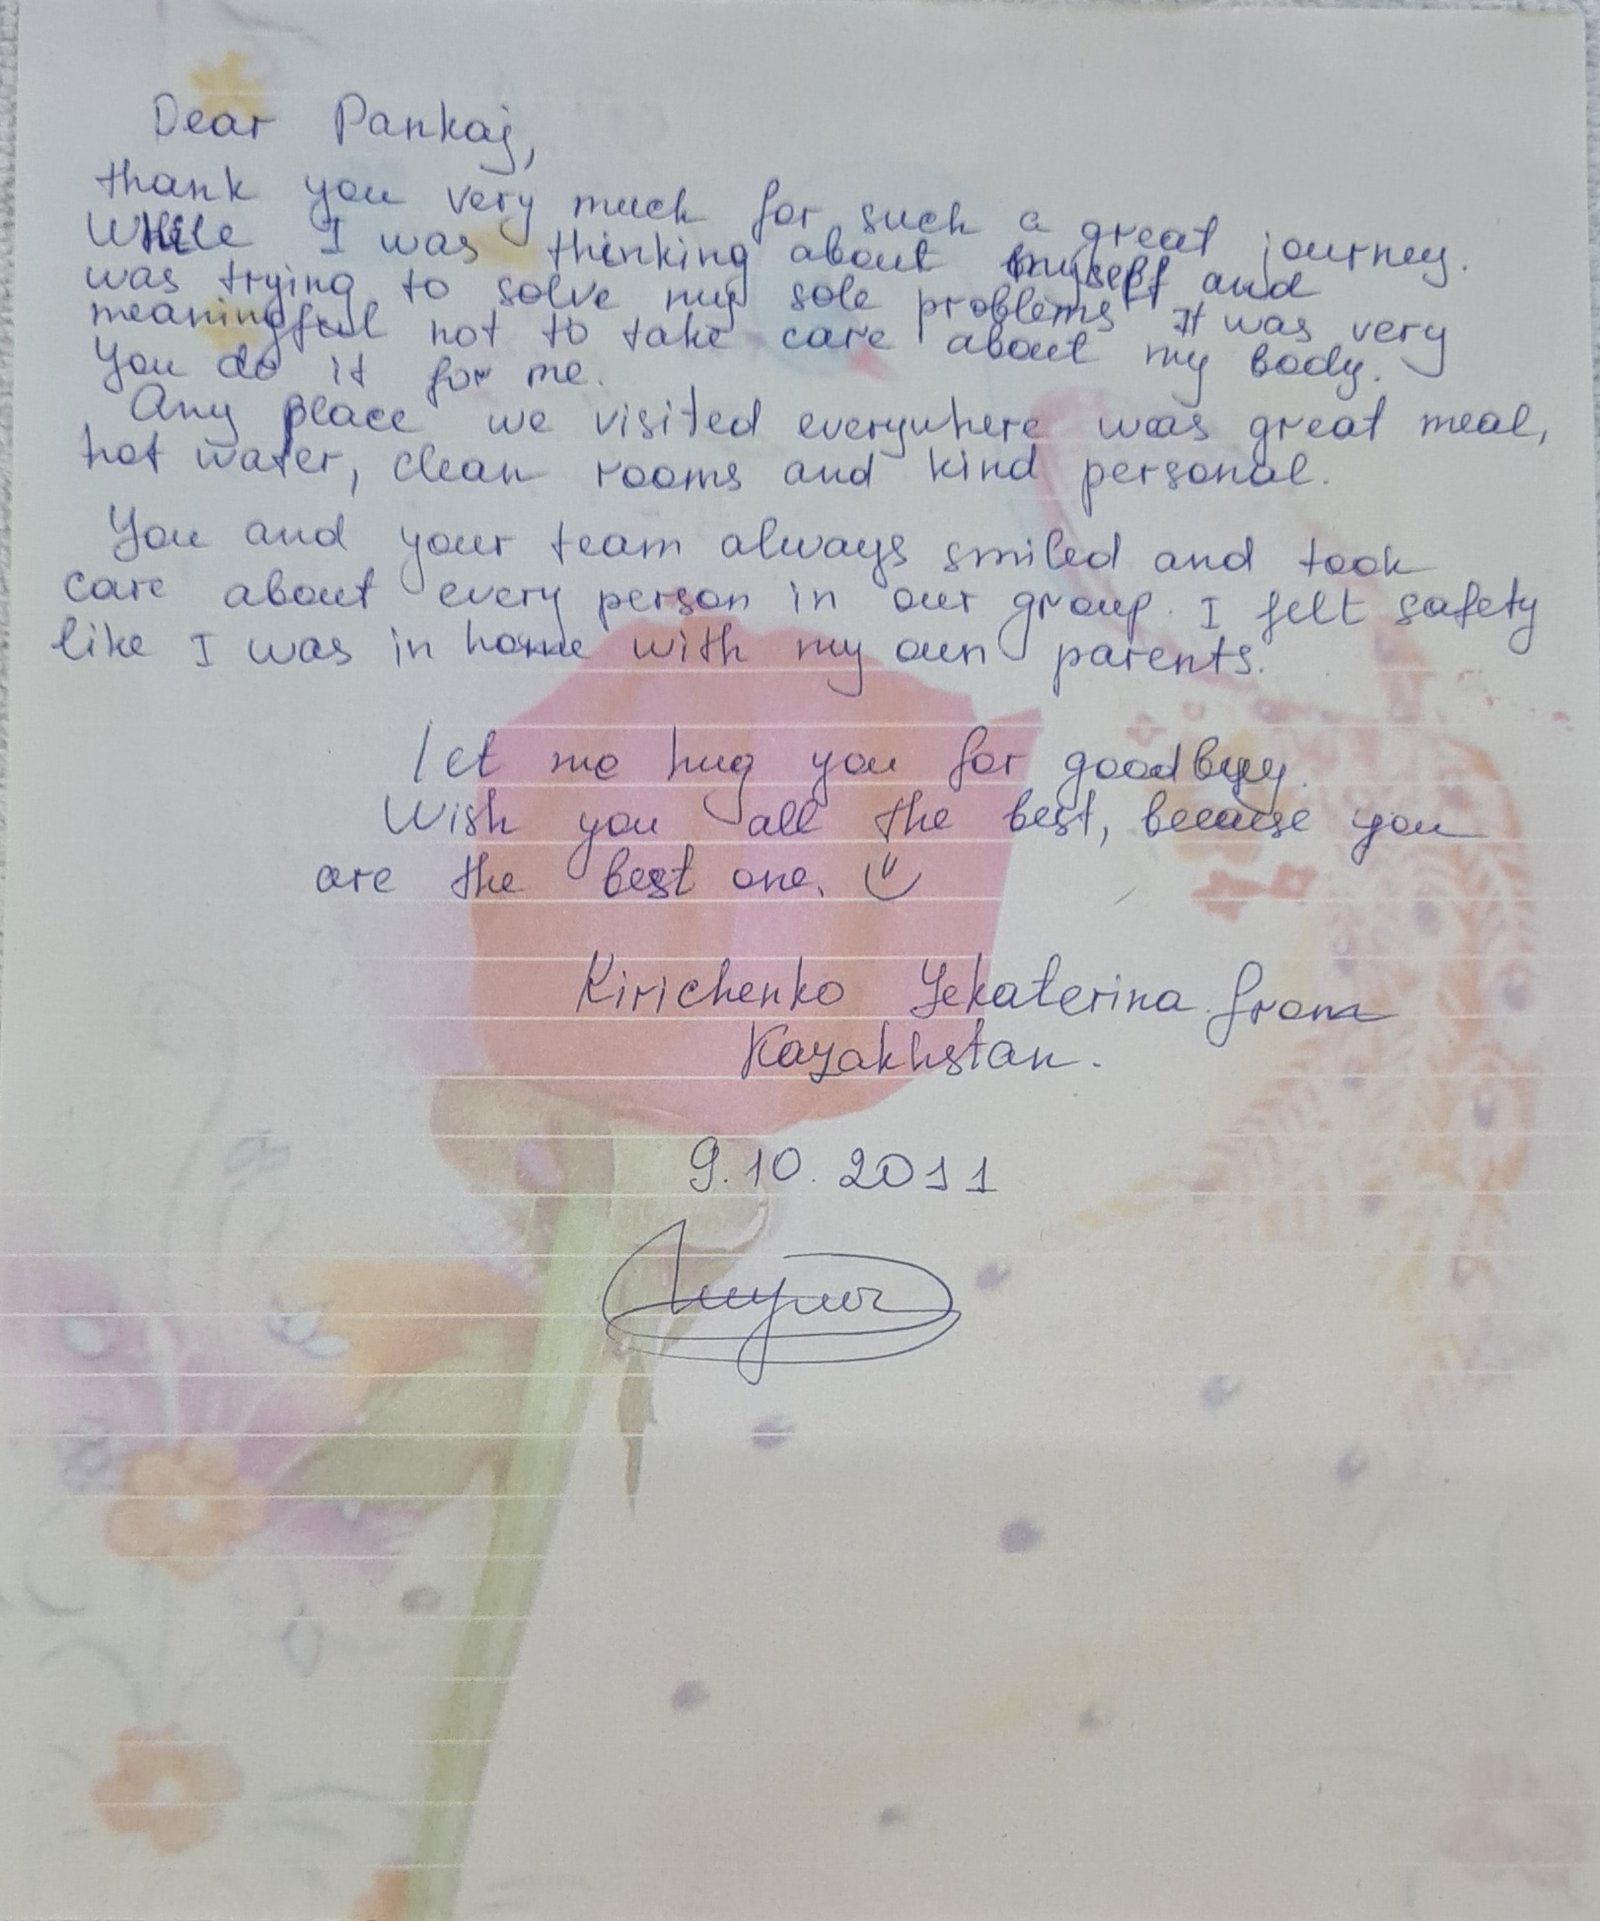 Dear Pankaj,
thank you very much for such a great journey.
While I was thinking about myself and
was trying to solve my sole problems It was very
meaningful not to take care about my body.
You do it for me.
Any place we visited everywhere was great meal,
hot water, clean rooms and kind personal.
You and your team always smiled and took
care about every person in our group. I felt safety
like I was in home with my own parents.
Let me hug you for goodbyy.
Wish you all the best, because you
are the best one.
Kirichenko Yekaterina from
Kazakhstan.
9.10.2011